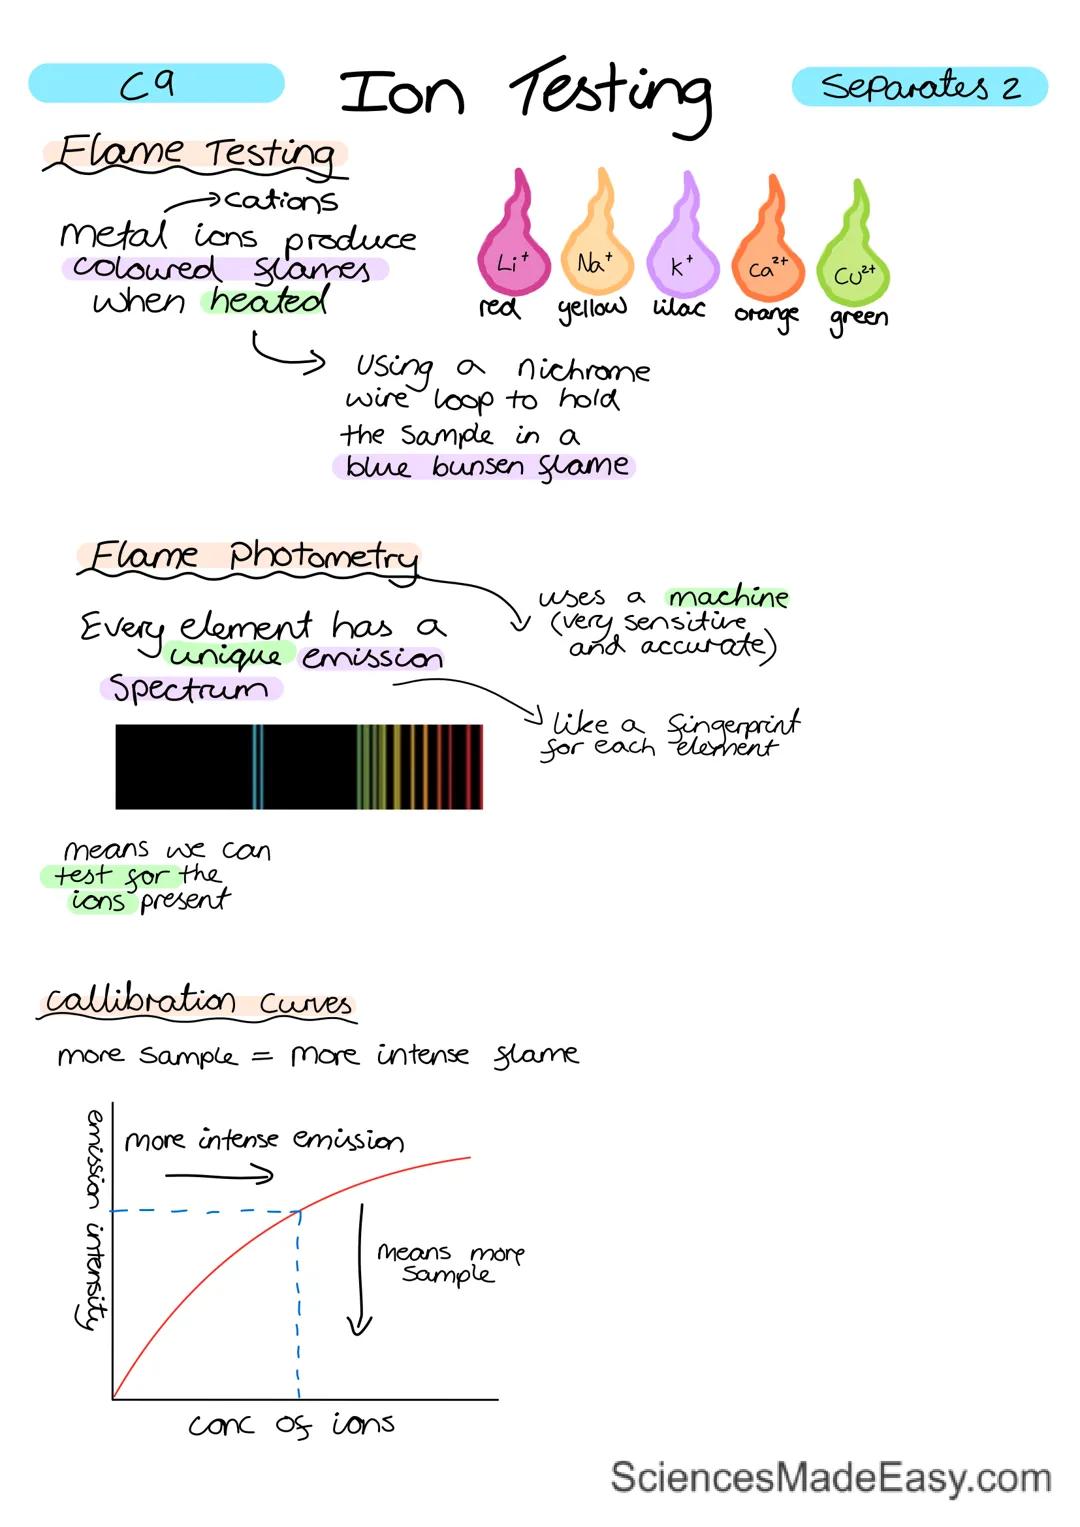 C9
Ion Testing
Separates 2
Flame Testing
cations
Metal ions produce
coloured flames
when heated
Li+
Na+
K+
Ca2+
Cu2+
red
yellow
lilac
orange
green
Using a nichrome
wire loop to hold
the sample in a
blue bunsen flame
Flame Photometry
uses a machine
(very sensitive
and accurate)
Every element has a
unique emission
Spectrum
like a fingerprint
for each element
means we can
test for the
ions present
Callibration Curves
more sample = more intense flame
emission intensity
more intense emission
means more
sample
conc of ions
SciencesMadeEasy.com